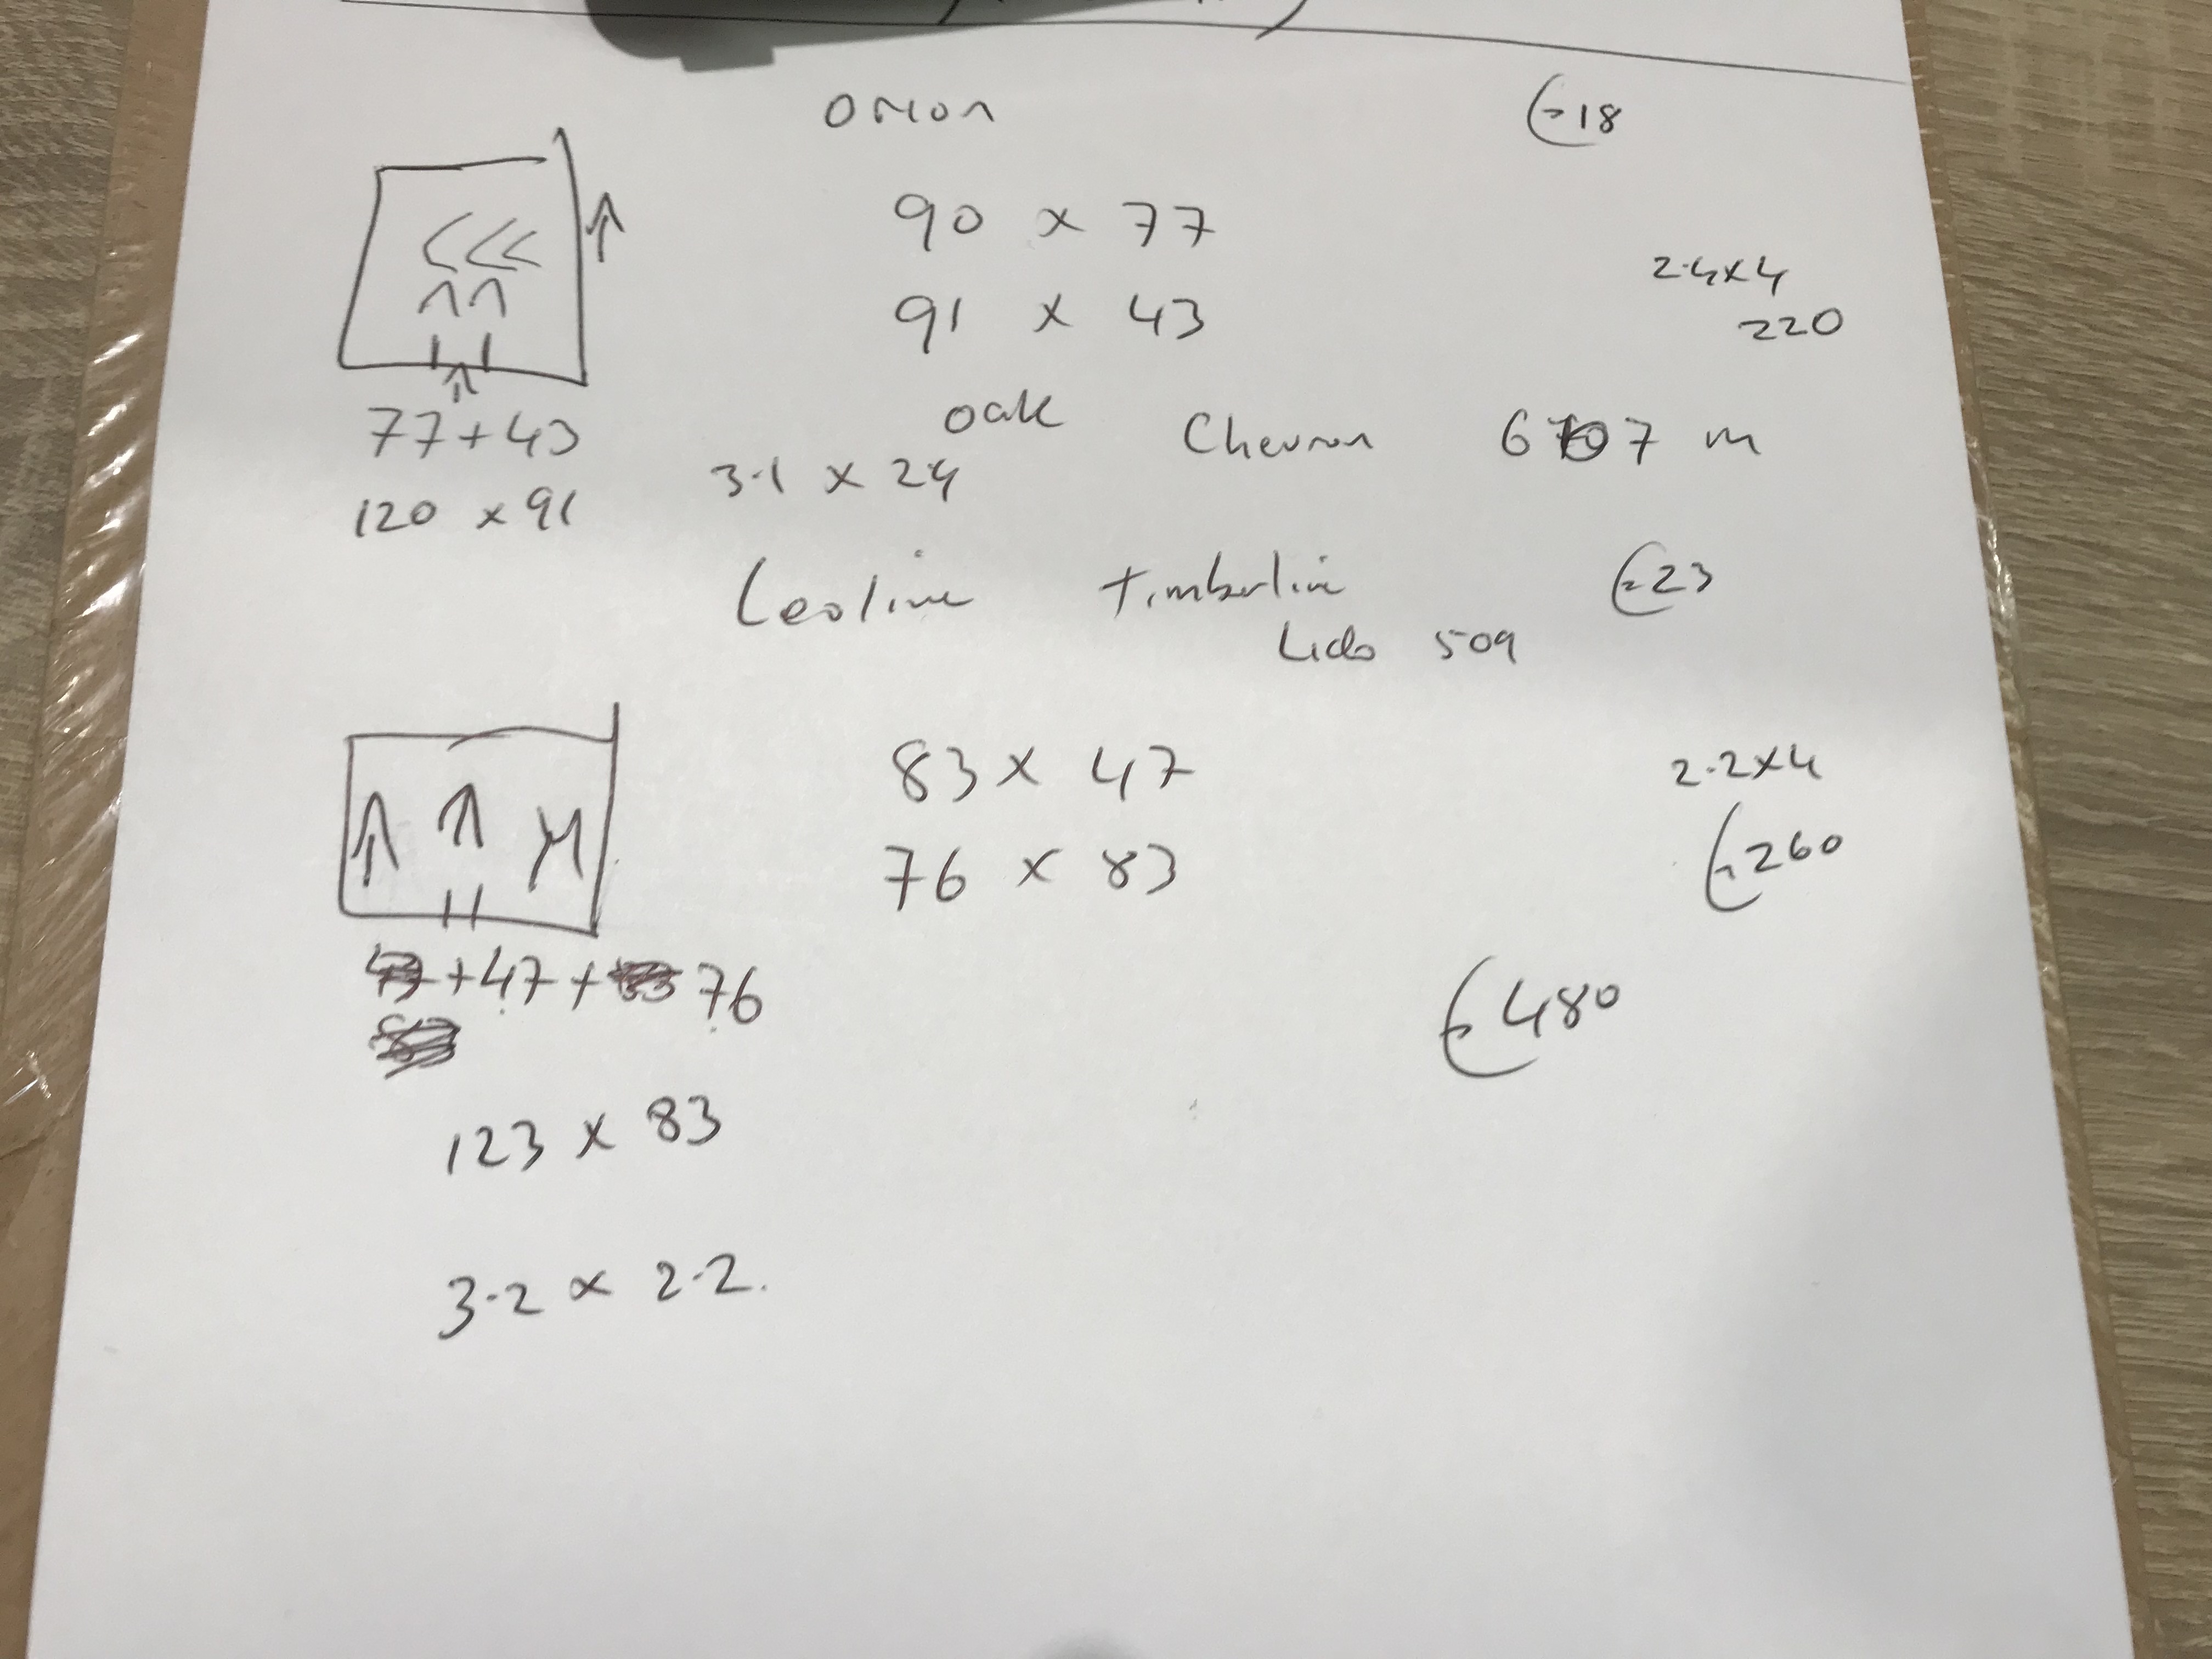 Orion €18
90 x 77
91 x 43
2.4x4
220
77+43
120 x 91
oak Chevron 6 7 m
3.1 x 24
Leoline Timberline €23
Lido 509
83 x 47
76 x 83
2.2x4
€260
+47+ 76
€480
123 x 83
3.2 x 2.2.